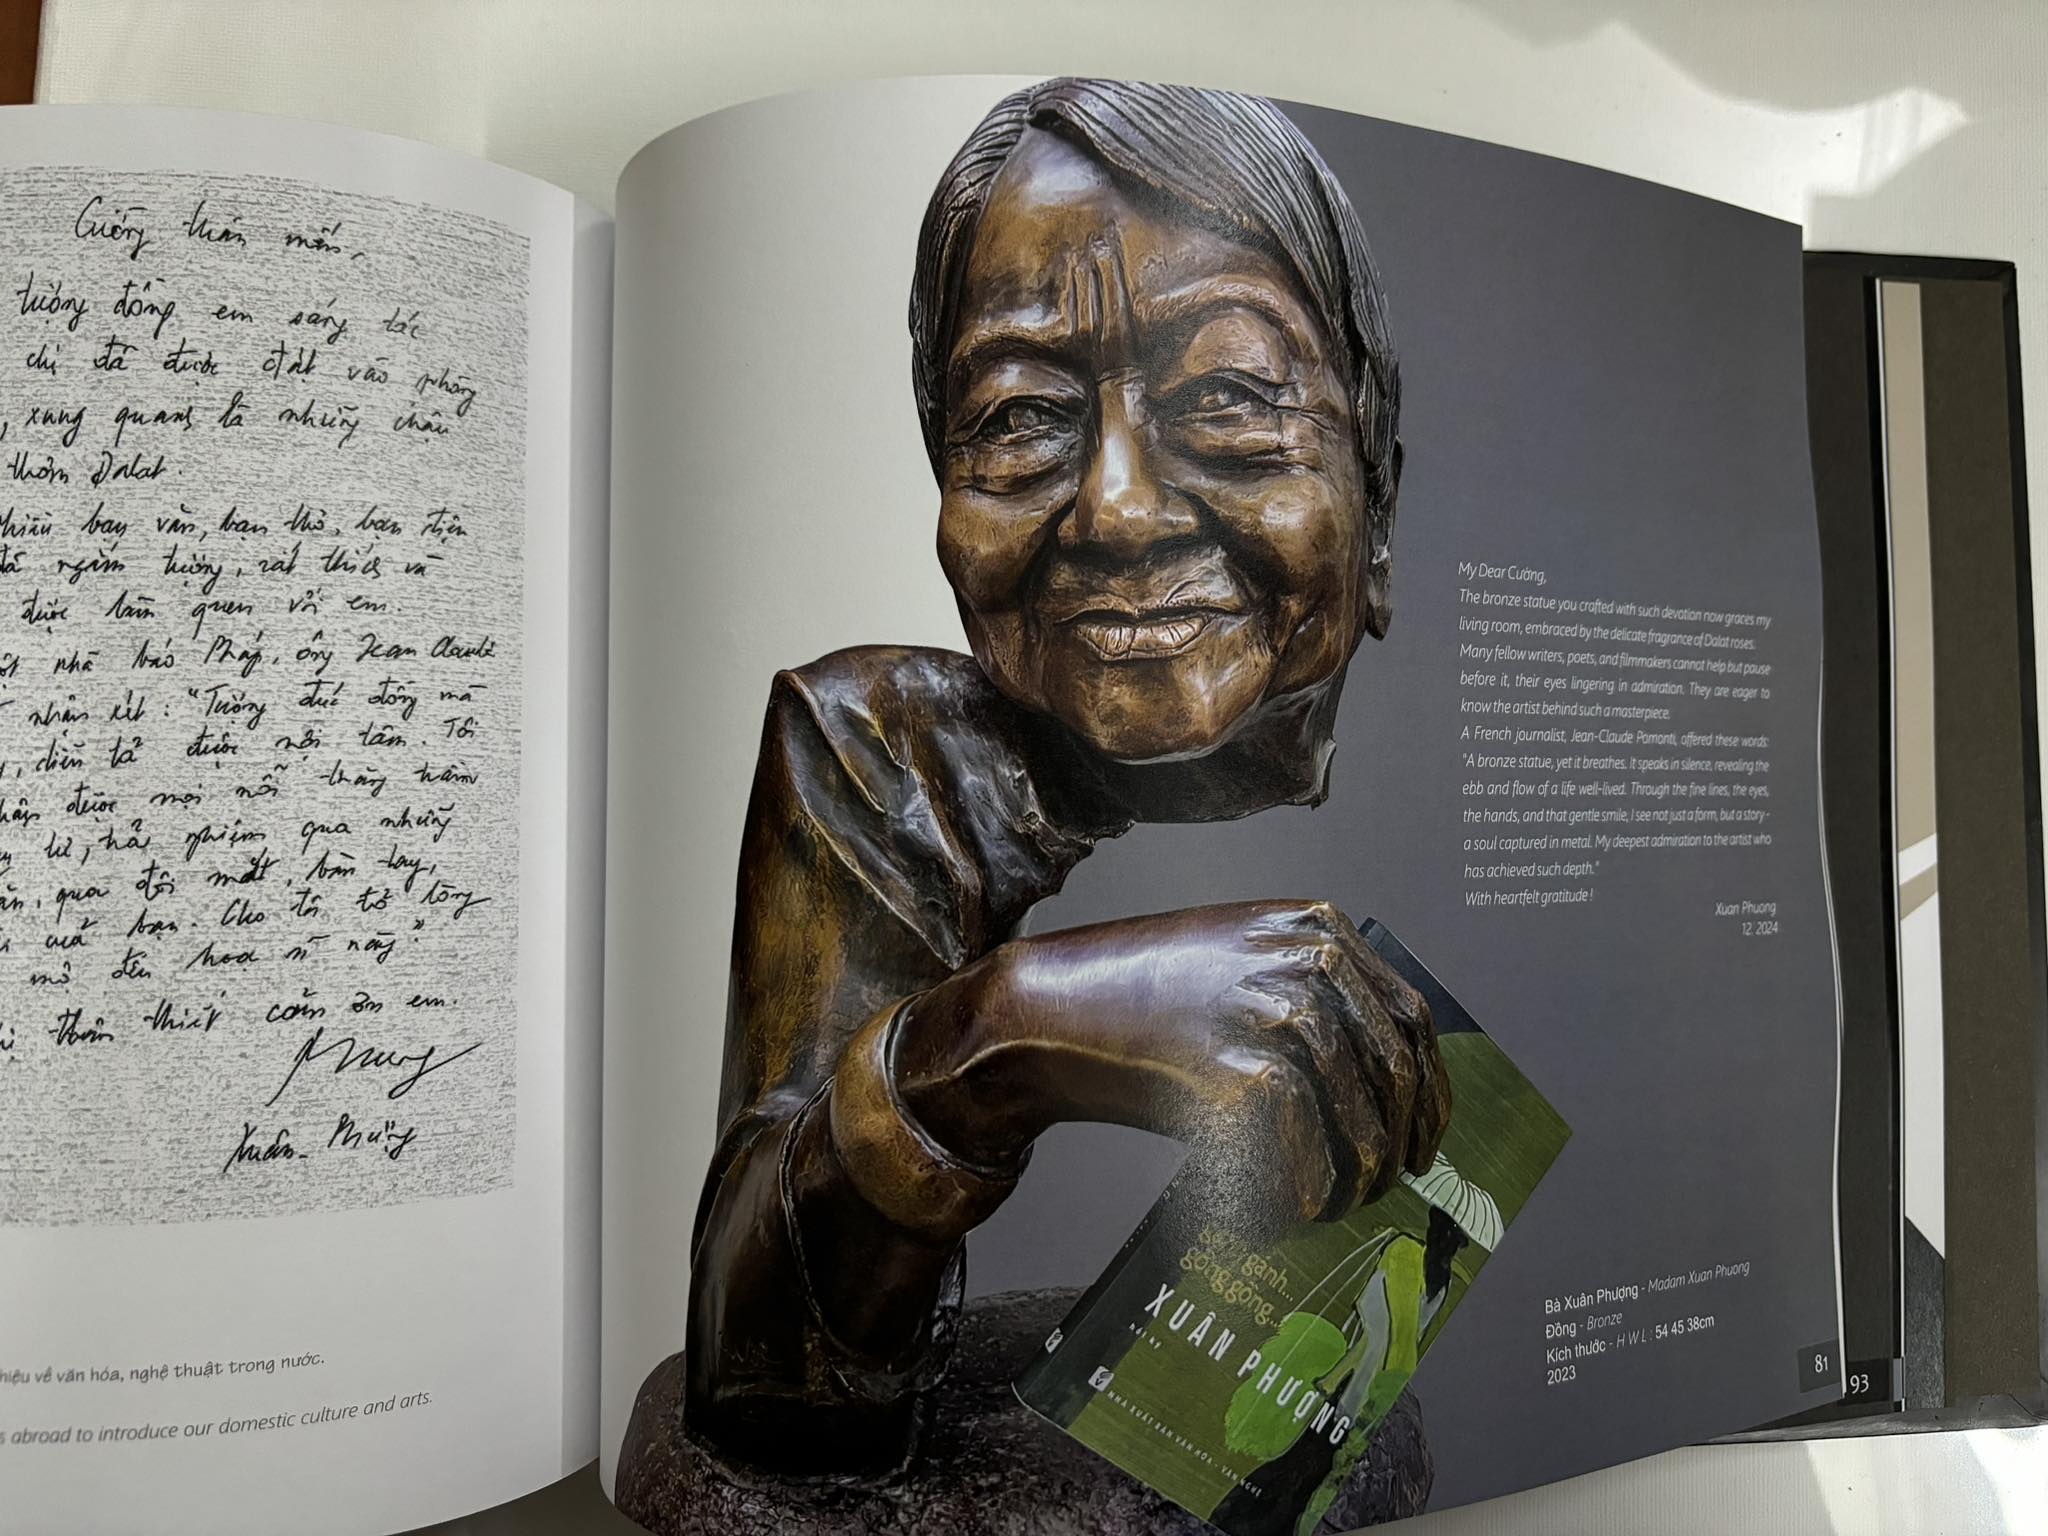 Cường thân mến,
tượng đồng em sáng tác
chị đã được đặt vào phòng
, xung quanh là những chậu
thơm Dalat.
Nhiều bạn văn, bạn thơ, bạn điện
đã ngắm tượng, rất thích và
được làm quen với em.
một nhà báo Pháp, ông Jean Claude
nhận xét: "Tượng đúc đồng mà
, diễn tả được nội tâm. Tôi
được mọi nỗi thăng trầm
tư, trải nghiệm qua những
, qua đôi mắt, bàn tay,
của bạn. Cho tôi tỏ lòng
mộ đến hoạ sĩ này."
thân thiết cảm ơn em.
Xuân Phượng
hiệu về văn hóa, nghệ thuật trong nước.
s abroad to introduce our domestic culture and arts.
My Dear Cường,
The bronze statue you crafted with such devotion now graces my
living room, embraced by the delicate fragrance of Dalat roses.
Many fellow writers, poets, and filmmakers cannot help but pause
before it, their eyes lingering in admiration. They are eager to
know the artist behind such a masterpiece.
A French journalist, Jean-Claude Pomonti, offered these words:
"A bronze statue, yet it breathes. It speaks in silence, revealing the
ebb and flow of a life well-lived. Through the fine lines, the eyes,
the hands, and that gentle smile, I see not just a form, but a story -
a soul captured in metal. My deepest admiration to the artist who
has achieved such depth."
With heartfelt gratitude !
Xuan Phuong
12. 2024
gánh...
gồng gồng...
XUÂN PHƯỢNG
hồi ký
NHÀ XUẤT BẢN VĂN HÓA - VĂN NGHỆ
Bà Xuân Phượng - Madam Xuan Phuong
Đồng - Bronze
Kích thước - H W L : 54 45 38cm
2023
81
93